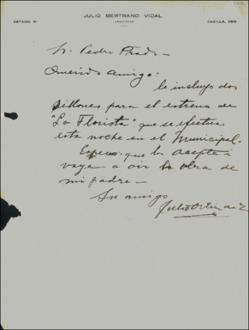 JULIO BERTRAND VIDAL
ARQUITECTO
Sr. Pedro Prado
Querido amigo:
le incluyo dos
sillones para el estreno de
"La Florista" que se efectua
esta noche en el Municipal.
Espero que los acepte i
vaya a oir la obra de
mi padre.
Su amigo
Julio Ortiz de Z